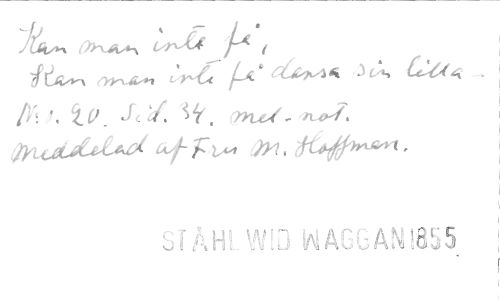 Kan man inte få,
Kan man inte få dansa sin lilla -
No. 20. Sid. 34. mel. not.
Meddelad af Fru M. Hoffman.
STÅHL WID WAGGAN 1855